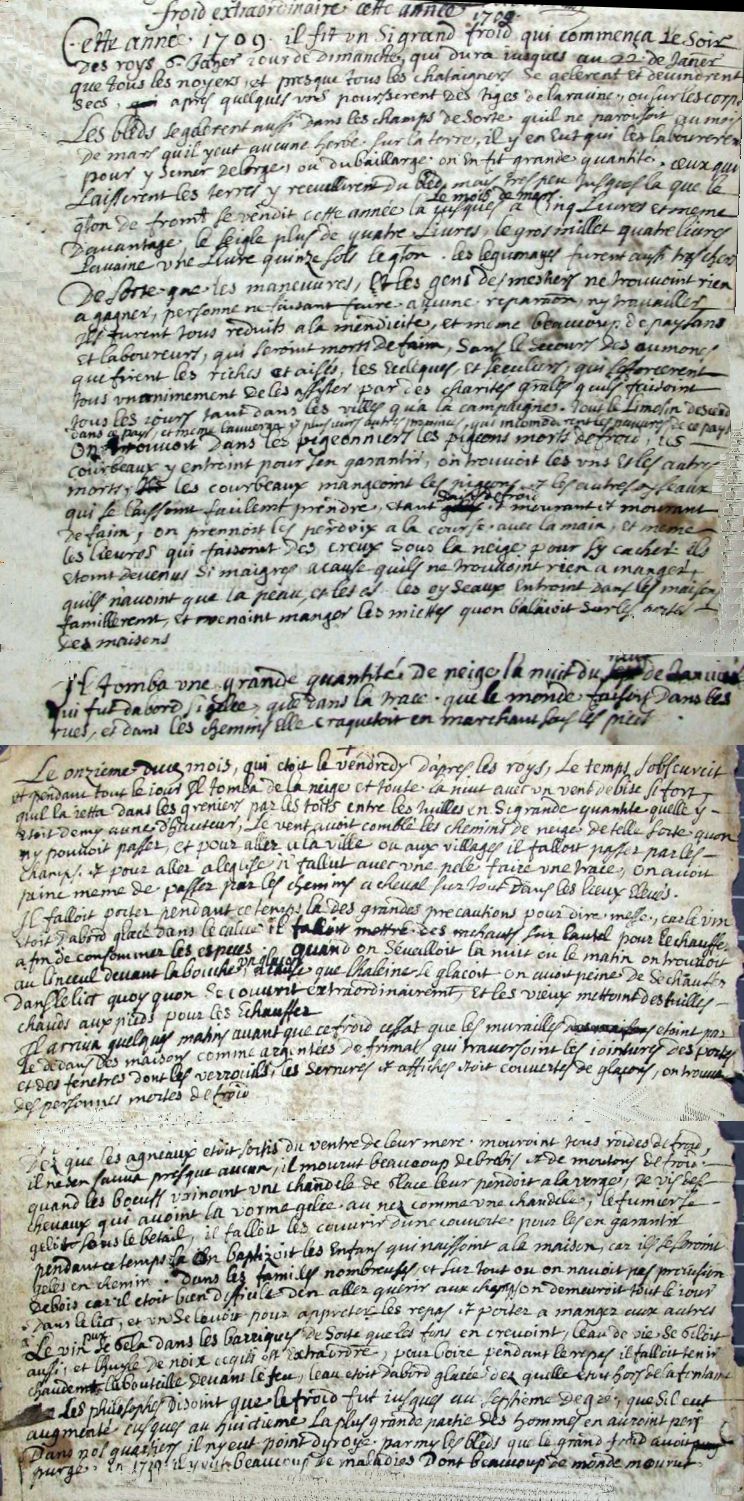 froid extraordinaire cette année 1709
Cette année 1709 il fit un si grand froid qui commença le soir
des roys 6 Janer jour de dimanche, qui dura jusques au 22 de Janer
que tous les noyers, et presque tous les chataigners se gelerent et devindrent
secs, apres quelques uns pousserent des tiges de la racine, ou sur les corps
Les bleds se gelerent aussi dans les champs de sorte qu'il ne paroissoit au mois
de mars qu'il y eut aucune herbe sur la terre, il y en eut qui les labourerent
pour y semer de lorge, ou du baillarge on en fit grande quantité, ceux qui
laisserent les terres y recueillirent du bled mais tres peu jusques la que le
le mois de mars
qton de fromt se vendit cette année la jusques a cinq livres et meme
davantage, le seigle plus de quatre livres, le gros millet quatre livres
Lavoine une livre quinze sols le qton. les legumages furent aussi tres chers
De sorte que les maneuvres, et les gens de mestiers ne trouvoint rien
a gagner, personne ne faisant faire aqune reparaon, ny travailler
ils furent tous reduits a la mendicite, et meme beaucoup de paysans
et laboureurs, qui seroint morts de faim, sans le secours des aumones
que firent les riches et aisés, les ecclesqes et seculiers, qui sefforcerent
tous unanimement de les assister par des charites grales quils faisoint
tous les jours tant dans les villes qua la campaigne. tout le Limosin descend
dans ce pays, et meme lauvergne et plusieurs autres provinces, qui incomoderent les pauvres de ce pays
On trouvoit dans les pigeonniers les pigeons morts de froid, les
courbeaux y entroint pour sen garantir, on trouvoit les uns et les autres
morts, les courbeaux mangeoint les pigeons, et les autres oyseaux
qui se laissoint facilemt prendre, etant saisis de froid et mourant et mourant
de faim, on prennoit les perdrix a la course avec la main, et meme
les lievres qui faisoient des creux sous la neige pour sy cacher ils
etoint devenus si maigres a cause quils ne trouvoint rien a manger
quils navoint que la peau, et les os les oyseaux entroint dans les maisons
famillerent, et venoint manger les miettes quon balaioit sur les portes
des maisons
il tomba une grande quantité de neige la nuit du sept de Janvier
qui fut dabord gelee, que dans la trace que le monde faisoit dans les
rues, et dans les chemins elle craquetoit en marchant sous les pieds
Le onzieme duce mois, qui etoit le vendredy dapres les roys, le temps sobscurcit
et pendant tout le jour il tomba de la neige et toute la nuit avec un vent de bise si fort
quil la jetta dans les greniers par les toits entre les tuilles en si grande quantite quelle y
etoit demy aune d'hauteur, le vent avoit comblé les chemins de neige de telle sorte quon
ny pouvoit passer, et pour aller a la ville ou aux villages il falloit passer par les
champs. et pour aller a leglise il fallut avec une pele faire une trace, on avoit
peine meme de passer par les chemins a cheval sur tout dans les lieux elevés.
Il falloit porter pendant ce temps la des grandes precautions pour dire messe, car le vin
etoit dabord glacé dans le calice il faloit mettre des rechauts sur lautel pour le chauffer
a fin de consommer les especes. quand on seveilloit la nuit ou le matin on trouvoit
au linceul devant la bouche un glaçon a cause que lhaleine se glaçoit on avoit peine de se chauffer
dans le lict quoy quon se couvrit extraordinairemt, et les vieux mettoint des tuilles
chauds aux pieds pour les echauffer
Il arriva quelques matins avant que ce froid cessat que les murailles etoint par
le dedans des maisons comme argentées de frimats qui traversoint les jointures des portes
et des fenetres dont les verrouils, les serrures et affiches etoit couvertes de glaçons, on trouva
des personnes mortes de froid
Dez que les agneaux etoit sortis du ventre de leur mere mouroint tous roides de froid,
il ne sen sauva presque aucun, il mourut beaucoup de brebis et de moutons de froid
quand les boeufs urinoint une chandele de glace leur pendoit a la verge, je vis des
chevaux qui avoint la vorme gelée au nez comme une chandele, le fumier se
geloit sous le betail, il falloit les couvrir dune couverte pour les en garantir
pendant ce temps la on baptizoit les enfans qui naissoint a le maison, car ils se seroint
geles en chemin. dans les familes nombreuses et sur tout ou on navoit pas provision
de bois car il etoit bien difficile den aller querir aux champs on demeuroit tout le jour
dans le lict, et un se levoit pour appreter les repas et porter a manger aux autres
Le vin pur se gela dans les barriques de sorte que les fons en crevoint, leau de vie se geloit
aussi, et lhuyle de noix ce qui est extraordre, pour boire pendant le repas il falloit tenir
chaudemt la bouteille devant le feu, leau etoit dabord glacée dez quelle etoit hors de la fontaine
Les philosophes disoint que le froid fut jusques au septieme degré, que sil eut
augmenté jusques au huictieme la plus grande partie des hommes en auroint peri
Dans nos quartiers il ny eut point du roye parmy les bleds que le grand froid avoit
purgé. en 1710 il y eut beaucoup de maladies dont beaucoup de monde mourut